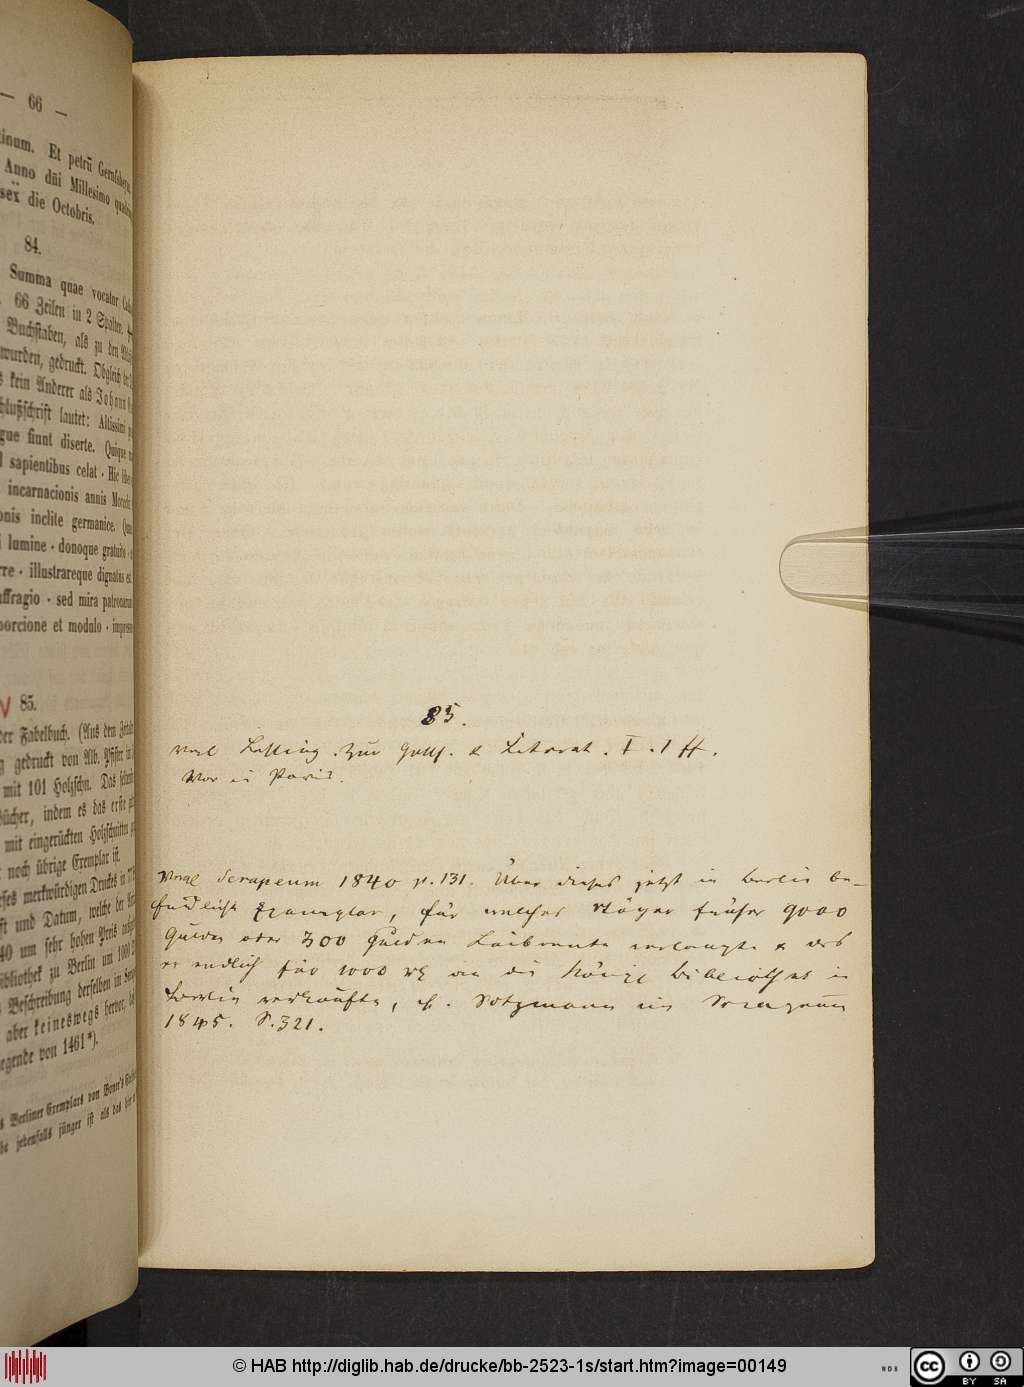 — 66 —
tinum. Et petrū Gernßheym
Anno dñi Millesimo quadrin
sex̄ die Octobris.
84.
Summa quae vocatur Catho
66 Zeilen in 2 Spalten.
Buchstaben, als zu den
wurden, gedruckt. Obgleich der
s kein Anderer als Johann
hlußschrift lautet: Altissimi
gue fiunt diserte. Quique
sapientibus celat · Hic liber
incarnacionis annis Mcccclx
onis inclite germanice. Quam
i lumine · donoque gratuito ·
rre · illustrareque dignatus est
uffragio · sed mira patronarum
porcione et modulo · impressus
V 85.
der Fabelbuch. (Aus dem
g gedruckt von Alb. Pfister in
mit 101 Holzschn. Das
Bücher, indem es das erste
mit eingerückten Holzschnitten
noch übrige Exemplar ist.
eses merkwürdigen Druckes in
ft und Datum, welche der
40 um sehr hohen Preis
ibliothek zu Berlin um 1000
Beschreibung derselben im
aber keineswegs hervor,
egende von 1461*).
s Berliner Exemplars von Boner's
be jedenfalls jünger ist als das
85.
Vergl. Lessing. Zur Gesch. & Literat. I. 1 ff.
War in Paris.
Vergl. Serapeum 1840 p. 131. Über dieses jetzt in Berlin be-
findliche Exemplar, für welches Stöger früher 9000
Gulden oder 300 Gulden Leibrente verlangte & das
er endlich für 1000 an die Königl. Bibliothek in
Berlin verkaufte, cf. Sotzmann im Serapeum
1845. S. 321.
© HAB http://diglib.hab.de/drucke/bb-2523-1s/start.htm?image=00149
WDB
cc
BY SA